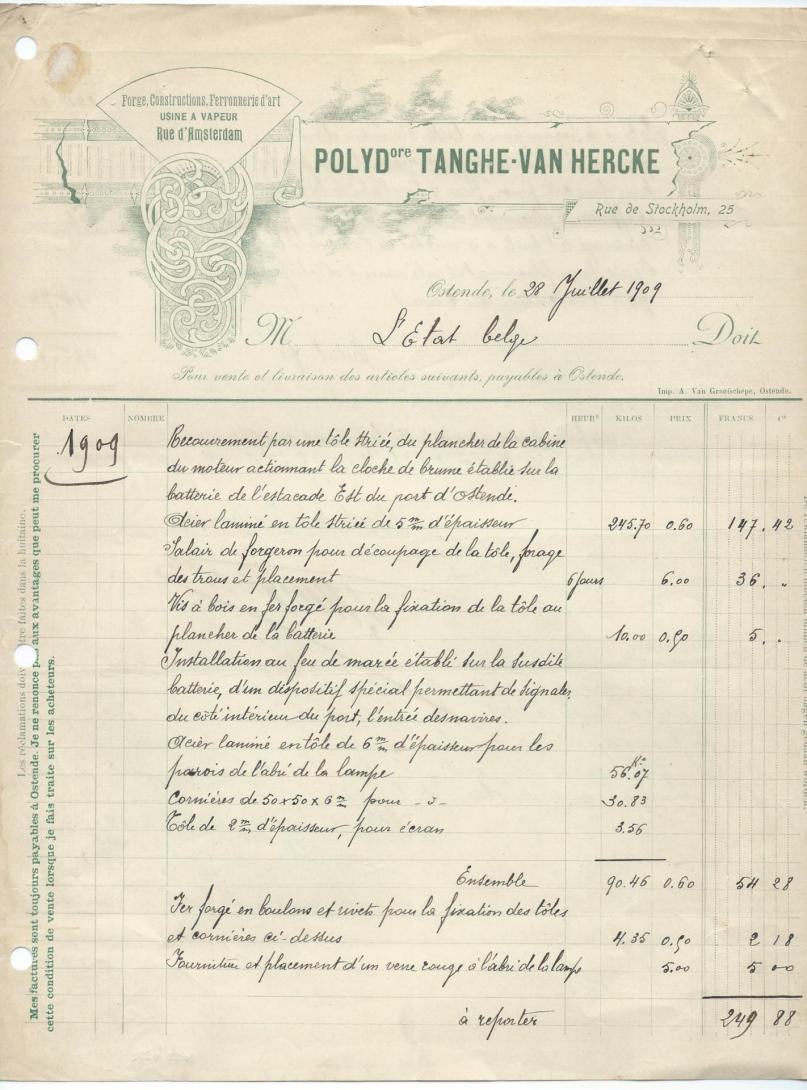 Forge, Constructions, Ferronnerie d'art
USINE A VAPEUR
Rue d'Amsterdam
POLYD<sup>ore</sup> TANGHE-VAN HERCKE
Rue de Stockholm, 25
Ostende, le 28 Juillet 1909
M L'Etat belge Doit
Pour vente et livraison des articles suivants, payables à Ostende.
Imp. A. Van Graefschepe, Ostende.
DATES NOMBRE HEUR<sup>s</sup> KILOS PRIX FRANCS C<sup>s</sup>
1909 Recouvrement par une tôle striée, du plancher de la cabine
du moteur actionnant la cloche de brume établie sur la
batterie de l'estacade Est du port d'Ostende.
Acier laminé en tôle striée de 5 m/m d'épaisseur 245.70 0.60 147. 42
Salair de forgeron pour découpage de la tôle, forage
des trous et placement 6 jours 6.00 36. "
Vis à bois en fer forgé pour la fixation de la tôle au
plancher de la batterie 10.00 0.50 5. "
Installation au feu de marée établi sur la susdite
batterie, d'un dispositif spécial permettant de signaler,
du côté intérieur du port, l'entrée des navires.
Acier laminé en tôle de 6 m/m d'épaisseur pour les
parois de l'abri de la lampe 56.07 K°
Cornières de 50 x 50 x 6 m/m pour - d° - 30.83
Tôle de 2 m/m d'épaisseur, pour écran 3.56
Ensemble 90.46 0.60 54 28
Fer forgé en boulons et rivets pour la fixation des tôles
et cornières ci-dessus 4.35 0.50 2 18
Fourniture et placement d'un verre rouge à l'abri de la lampe 5.00 5 00
à reporter 249 88
Les réclamations être faites dans la huitaine.
Mes factures sont toujours payables à Ostende. Je ne renonce pas aux avantages que peut me procurer
cette condition de vente lorsque je fais traite sur les acheteurs.